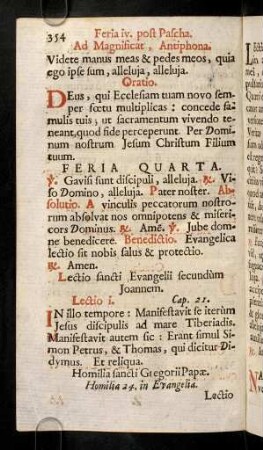 354 Feria iv. post Pascha.
Ad Magnificat, Antiphona.
Videte manus meas & pedes meos, quia
ego ipse sum, alleluja, alleluja.
Oratio.
DEus, qui Ecclesiam tuam novo sem-
per fœtu multiplicas: concede fa-
mulis tuis; ut sacramentum vivendo te-
neant, quod fide perceperunt. Per Domi-
num nostrum Jesum Christum Filium
tuum.
FERIA QUARTA.
℣. Gavisi sunt discipuli, alleluja. ℟. Vi-
so Domino, alleluja. Pater noster. Ab-
solutio. A vinculis peccatorum nostro-
rum absolvat nos omnipotens & miseri-
cors Dominus. ℟. Amē. ℣. Jube dom-
ne benedicere. Benedictio. Evangelica
lectio sit nobis salus & protectio.
℟. Amen.
Lectio sancti Evangelii secundùm
Joannem.
Lectio i. Cap. 21.
IN illo tempore: Manifestavit se iterùm
Jesus discipulis ad mare Tiberiadis.
Manifestavit autem sic: Erant simul Si-
mon Petrus, & Thomas, qui dicitur Di-
dymus. Et reliqua.
Homilia sancti Gregorii Papæ.
Homilia 24. in Evangelia.
Lectio